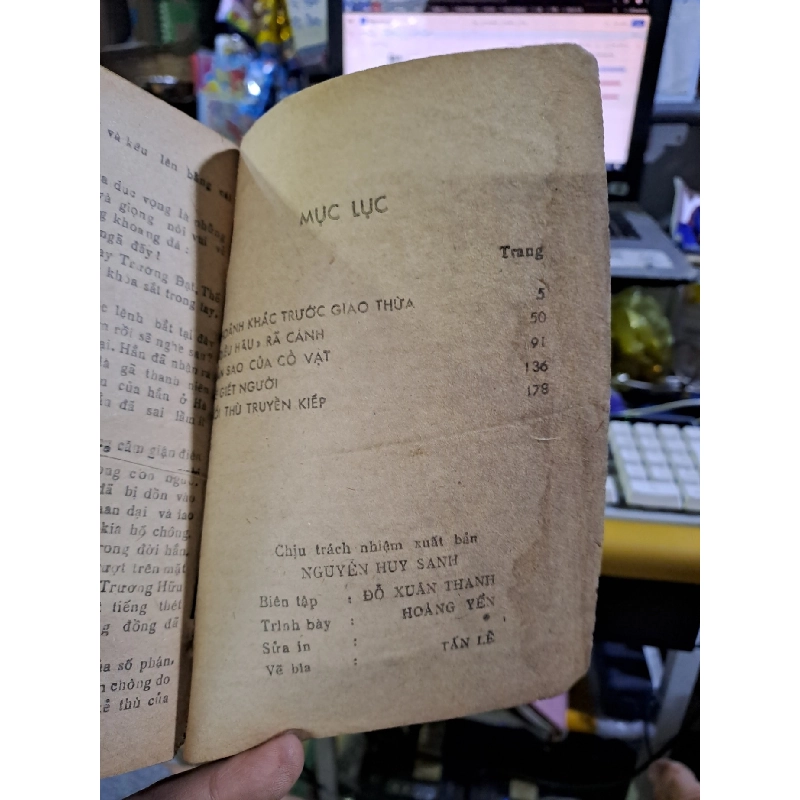 và kêu lên bằng
a dục vọng là những
và giọng nói
g khoang đá :
ngã đấy !
ay Trương Đạt. Thế
khóa sắt trong tay.
lệnh bắt tại
rồi sẽ nghe
ai. Hắn đã
là gã thanh niên
của hắn ở
đã sai lầm
căm giận điên
ong con người.
đã bị dồn vào
kia hộ chúng.
rong đời hắn.
ượt trên mặt
Trương Hữu
tiếng thét
ng đồng đã
ủa số phận.
n chông do
kẻ thù của
MỤC LỤC
Trang
KHẮC TRƯỚC GIAO THỪA 5
HÂU» RÃ CÁNH 50
SAO CỦA CỔ VẬT 91
GIẾT NGƯỜI 136
THÙ TRUYỀN KIẾP 178
Chịu trách nhiệm xuất bản
NGUYỄN HUY SANH
Biên tập : ĐỖ XUÂN THANH
Trình bày : HOÀNG YẾN
Sửa in :
Vẽ bìa : TẤN LÊ